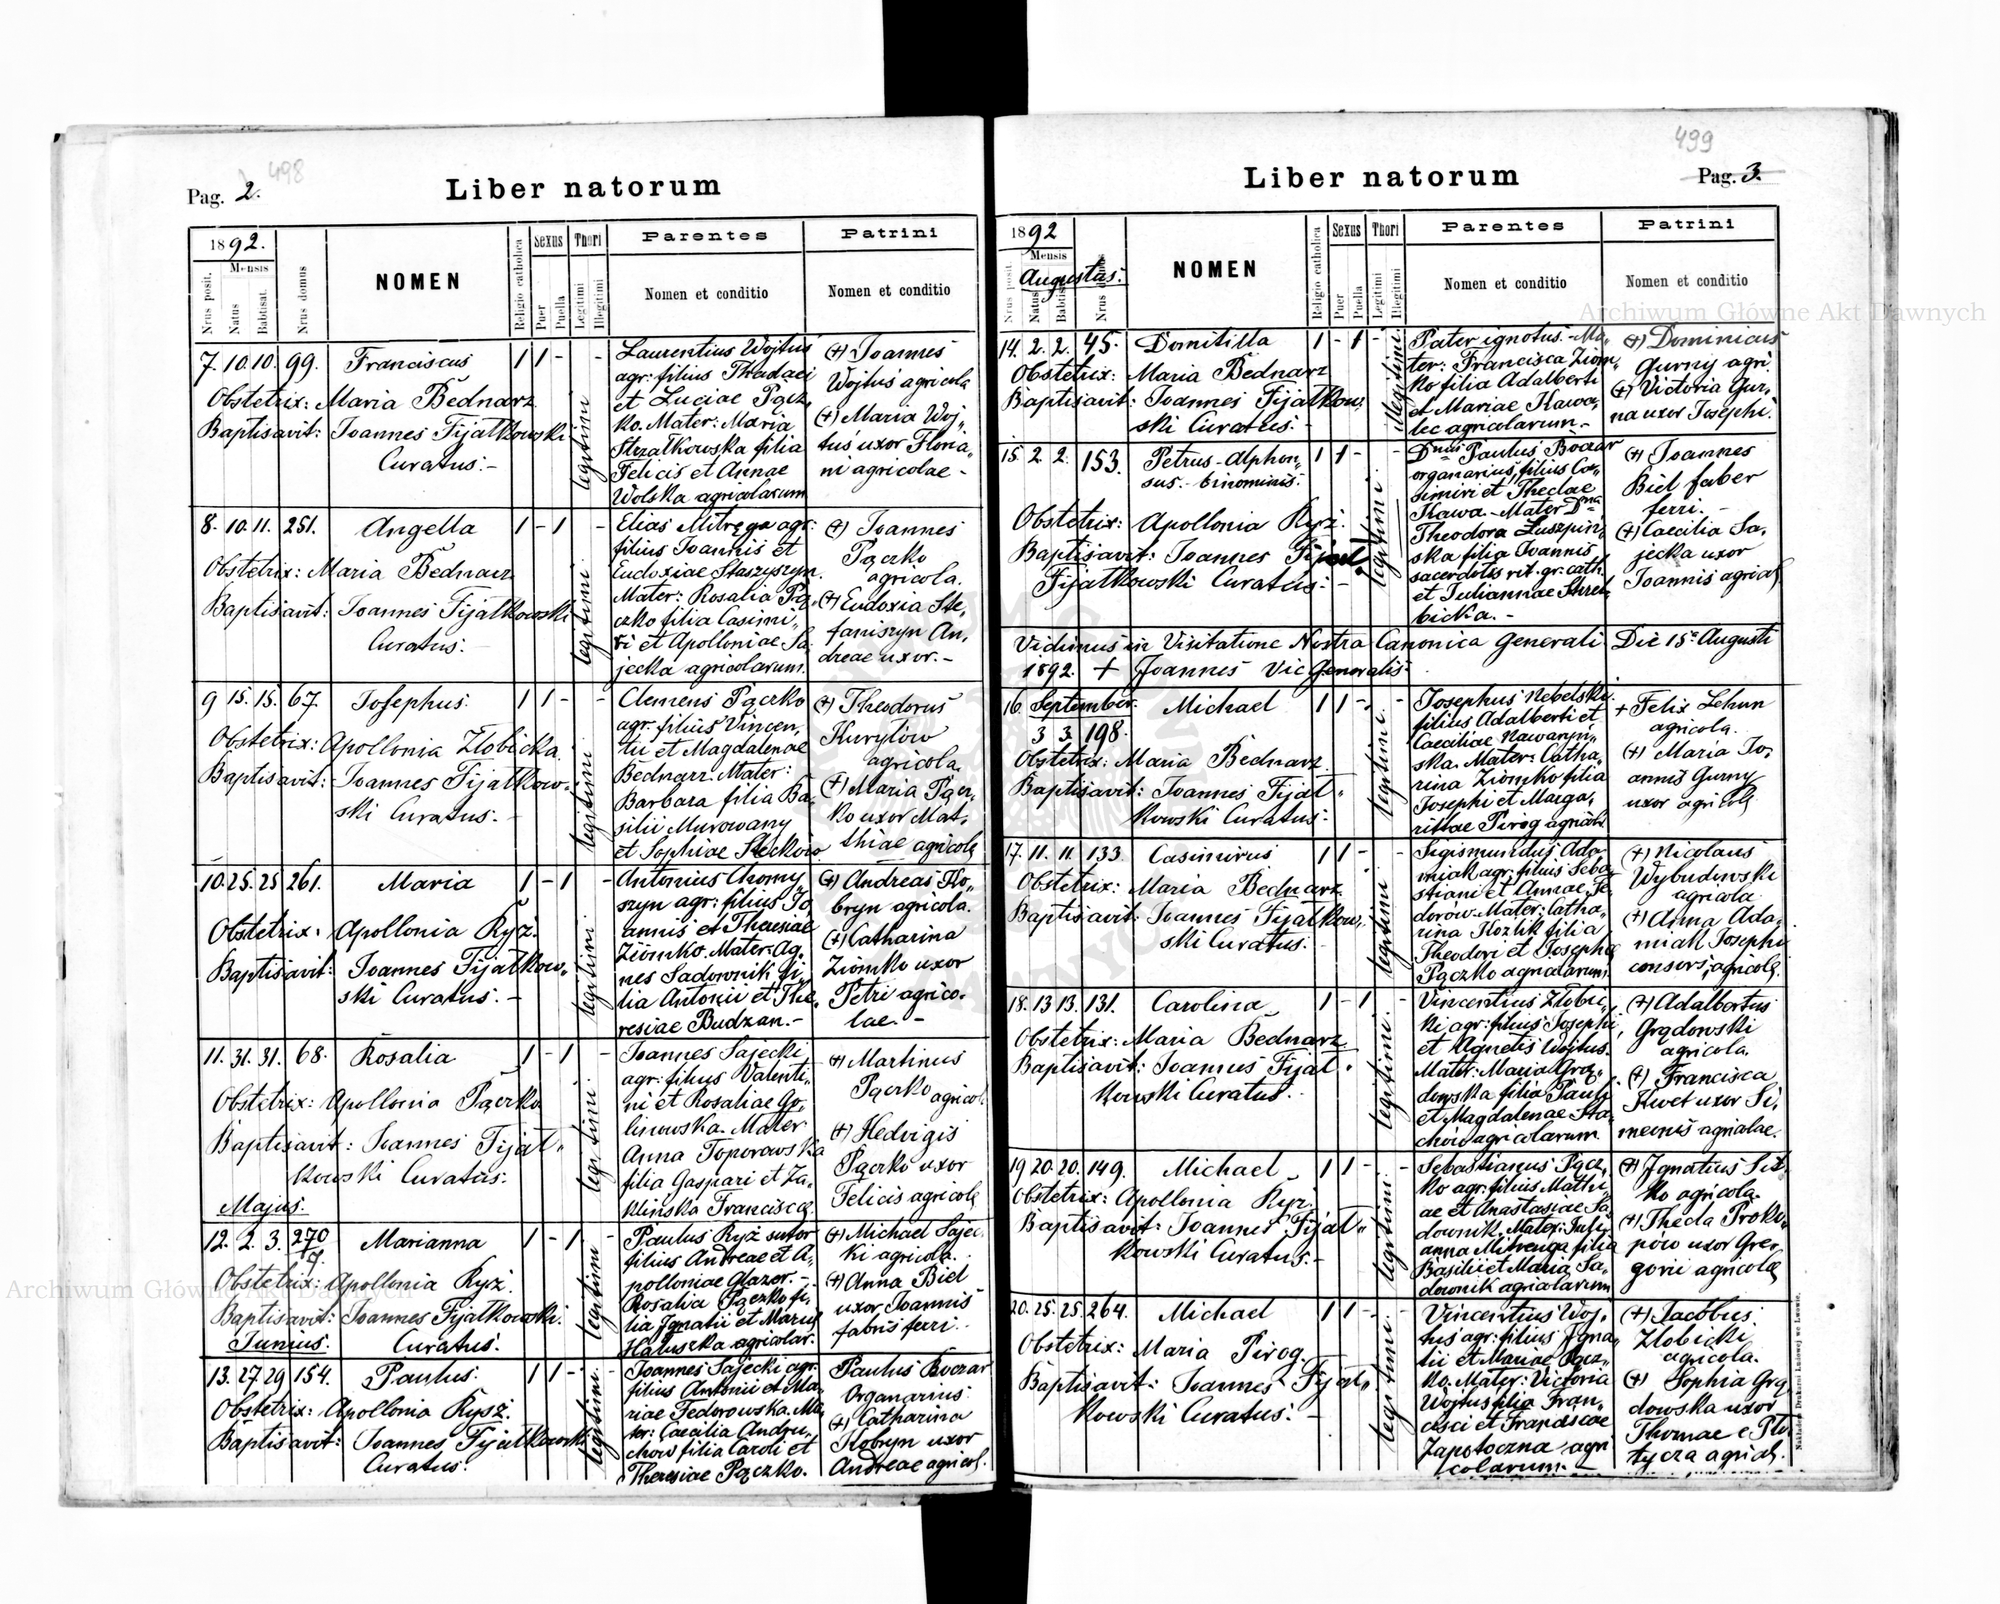 498
Pag. 2.
Liber natorum
1892.
Mensis
Nrus posit.
Natus
Babtisat.
Nrus domus
NOMEN
Religio catholica
Sexus
Puer
Puella
Thori
Legitimi
Illegitimi
Parentes
Nomen et conditio
Patrini
Nomen et conditio
7. 10. 10. 99. Franciscus 1 1 - -
Obstetrix: Maria Bednarz
Baptisavit: Joannes Fijałkowski
Curatus. -
legitimi
Laurentius Wojtus
agr: filius Thadaei
et Luciae Pącz,
ko. Mater: Maria
Strzałkowska filia
Felicis et Annae
Wolska agricolarum
(+) Joannes
Wojtus agricola
(+) Maria Woj,
tus uxor Floria,
ni agricolae -
8. 10. 11. 251. Angella 1 - 1 -
Obstetrix: Maria Bednarz
Baptisavit: Joannes Fijałkowski
Curatus: -
legitimi
Elias Mitręga agr:
filius Joannis et
Eudoxiae Staszyszyn.
Mater: Rosalia Pą,
czko filia Casimi,
ri et Apolloniae Sa,
jecka agricolarum.
(+) Joannes
Pączko
agricola.
(+) Eudoxia Ste,
faniszyn An,
dreae uxor. -
9 15. 15. 67. Josephus. 1 1 - -
Obstetrix: Apollonia Złobicka.
Baptisavit: Joannes Fijałkow,
ski Curatus. -
legitimi
Clemens Pączko
agr: filius Vincen,
tii et Magdalenae
Bednarz. Mater:
Barbara filia Ba,
silii Murowany
et Sophiae Steckow
(+) Theodorus
Kuryłów
agricola.
(+) Maria Pącz,
ko uxor Mat,
thiae agricolę
10. 25. 25 261. Maria 1 - 1 -
Obstetrix: Apollonia Ryż.
Baptisavit: Joannes Fijałkow,
ski Curatus. -
legitimi
Antonius Chomy
szyn agr: filius Jo
annis et Theresiae
Ziomko. Mater: Ag,
nes Sadownik fi,
lia Antonii et The,
resiae Budzan. -
(+) Andreas Ko,
bryn agricola.
(+) Catharina
Ziomko uxor
Petri agrico,
lae. -
11. 31. 31. 68. Rosalia 1 - 1 -
Obstetrix: Apollonia Pączko
Baptisavit: Joannes Fijał,
kowski Curatus:
legitimi
Joannes Sajecki
agr: filius Valenti,
ni et Rosaliae Go,
linowska. Mater
Anna Toporowska
filia Gaspari et Za,
klińska Francisca.
(+) Martinus
Pączko agricol.
(+) Hedvigis
Pączko uxor
Felicis agricolę
Majus.
12. 2. 3. 270 Marianna 1 - 1 -
7.
Obstetrix: Apollonia Ryż.
Baptisavit: Joannes Fijałkowski.
Curatus.
legitimi
Paulus Ryż sutor
filius Andreae et A,
polloniae Glazer. -
Rosalia Pączko fi,
lia Ignatii et Mariae
Haluszka agricolar.
(+) Michael Sajec,
ki agricola.
(+) Anna Biel
uxor Joannis
fabris ferri.
Junius.
13. 27. 29 154. Paulus. 1 1 - -
Obstetrix: Apollonia Rysz.
Baptisavit: Joannes Fijałkowski
Curatus.
legitimi
Joannes Sajecki agr.
filius Antonii et Ma,
riae Fedorowska. Ma,
ter: Caecilia Andru,
chow filia Caroli et
Theresiae Pączko.
Paulus Boczar
Organarius.
(+) Catharina
Kobryn uxor
Andreae agricol.
499
Liber natorum
Pag. 3.
1892
Mensis
Augustus.
Nrus posit
Natus
Babtis
Nrus
NOMEN
Religio catholica
Sexus
Puer
Puella
Thori
Legitimi
Illegitimi
Parentes
Nomen et conditio
Patrini
Nomen et conditio
14. 2. 2. 45. Domitilla 1 - 1 -
Obstetrix: Maria Bednarz
Baptisavit: Joannes Fijałkow,
ski Curatus. -
illegitimi
Pater ignotus. Ma,
ter: Francisca Ziom,
ko filia Adalberti
et Mariae Kawa,
lec agricolarum. -
(+) Dominicus
Gurny agri.
(+) Victoria Gur,
na uxor Josephi.
15. 2. 2. 153. Petrus-Alphon, 1 1 - -
sus. binominis.
Obstetrix: Apollonia Ryż.
Baptisavit: Joannes
Fijałkowski Curatus. -
legitimi
Dnus Paulus Boczar
organarius, filius Ca,
simiri et Theclae
Kawa. - Mater Dna
Theodora Łuszpiń,
ska filia Joannis
sacerdotis rit. gr. cath.
et Julianae Strel,
bicka. -
(+) Joannes
Biel faber
ferri. -
(+) Caecilia Sa,
jecka uxor
Joannis agricol.
Vidimus in Visitatione Nostra Canonica Generali. Die 15a Augusti
1892. + Joannes Vic Generalis -
16. September. Michael 1 1 - -
3 3. 198.
Obstetrix: Maria Bednarz.
Baptisavit: Joannes Fijał,
kowski Curatus. -
legitimi
Josephus Nebelski.
filius Adalberti et
Caeciliae Nawaryń,
ska. Mater: Catha,
rina Ziomko filia
Josephi et Marga,
rithae Pirog agricol.
+ Felix Lehun
agricola.
(+) Maria Jo,
annis Gurny
uxor agricolę
17. 11. 11. 133. Casimirus 1 1 - -
Obstetrix: Maria Bednarz
Baptisavit: Joannes Fijałkow,
ski Curatus. -
legitimi
Sigismundus Ada,
miak agr, filius Seba,
stiani et Annae Fe,
dorow. Mater: Catha,
rina Kozlik filia
Theodori et Josepha
Pączko agricolarum.
(+) Nicolaus
Wybudowski
agricola
(+) Anna Ada,
miak Josephi
consors, agricolę.
18. 13 13. 131. Carolina 1 - 1 -
Obstetrix: Maria Bednarz
Baptisavit: Joannes Fijał,
kowski Curatus. -
legitimi
Vincentius Złobic,
ki agr: filius Josephi,
et Agnetis Wojtus.
Mater: Maria Grą,
dowska filia Pauli
et Magdalenae Sta,
chów agricolarum.
(+) Adalbertus
Grądowski
agricola.
(+) Francisca
Kwet uxor Si,
meonis agricolae.
19. 20. 20. 149. Michael 1 1 - -
Obstetrix: Apollonia Ryż.
Baptisavit: Joannes Fijał,
kowski Curatus. -
legitimi
Sebastianus Pącz,
ko agr: filius Matthi,
ae et Anastasiae Sa,
downik. Mater: Juli,
anna Mitrenga filia
Basilii et Maria Sa,
downik agricolarum
(+) Ignatius Sit,
ko agricola.
(+) Thecla Proko,
pów uxor Gre,
gorii agricolę
20. 25. 25. 264. Michael 1 1 - -
Obstetrix: Maria Pirog
Baptisavit: Joannes Fijał,
kowski Curatus. -
legitimi
Vincentius Woj,
tus agr: filius Igna,
tii et Mariae Pącz,
ko. Mater: Victoria
Wojtus filia Fran,
cisci et Franciscae
Zapotoczna agri
colarum. -
(+) Jacobus.
Złobicki
agricola.
(+) Sophia Grą,
dowska uxor
Thomae e Pło
tycza agricol.
Nakładem Drukarni Ludowej we Lwowie.
Archiwum Główne Akt Dawnych
Archiwum Główne Akt Dawnych